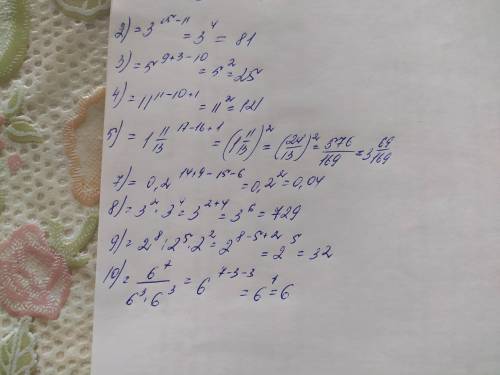 2) = 3^15-11 = 3^4 = 81
3) = 5^9+3-10 = 5^2 = 25
4) = 11^11-10+1 = 11^2 = 121
5) = 1 11/13^17-16+1 = (1 11/13)^2 = (24/13)^2 = 576/169 = 3 69/169
7) = 0,2^14+9-15-6 = 0,2^2 = 0,04
8) = 3^2 · 3^4 = 3^2+4 = 3^6 = 729
9) = 2^8 : 2^5 · 2^2 = 2^8-5+2 = 2^5 = 32
10) = 6^7/6^3 · 6^3 = 6^7-3-3 = 6^1 = 6